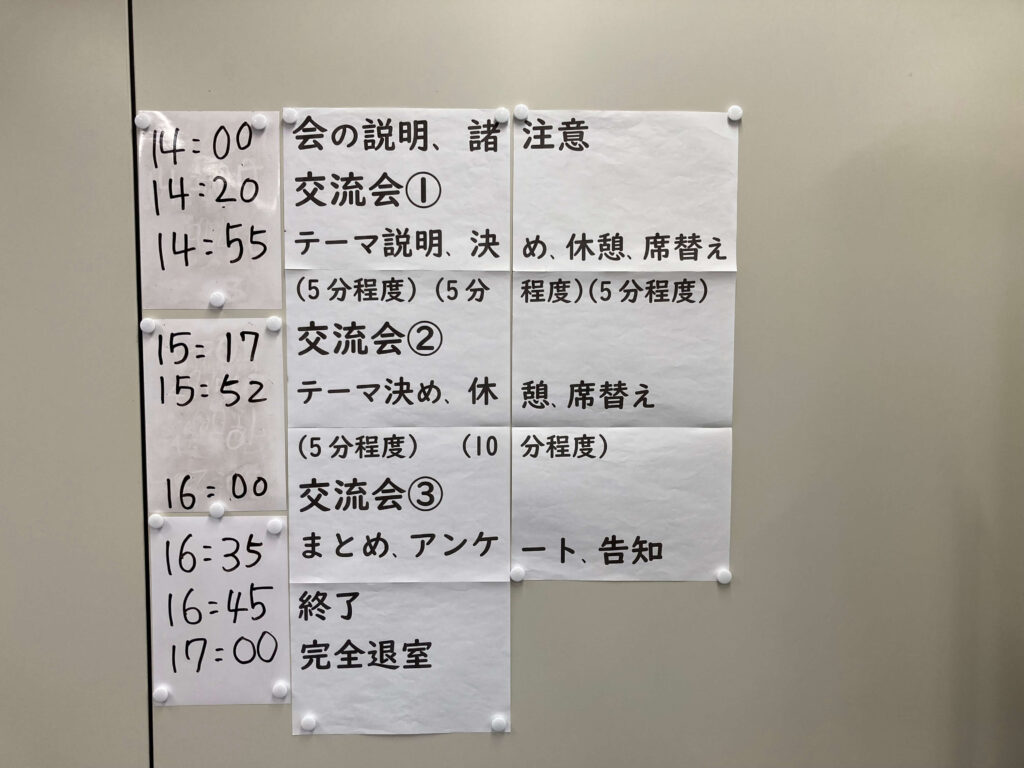 14:00 会の説明、諸注意
14:20 交流会①
14:55 テーマ説明、決め、休憩、席替え
(5分程度) (5分程度)(5分程度)
15:17 交流会②
15:52 テーマ決め、休憩、席替え
(5分程度) (10分程度)
16:00 交流会③
16:35 まとめ、アンケート、告知
16:45 終了
17:00 完全退室